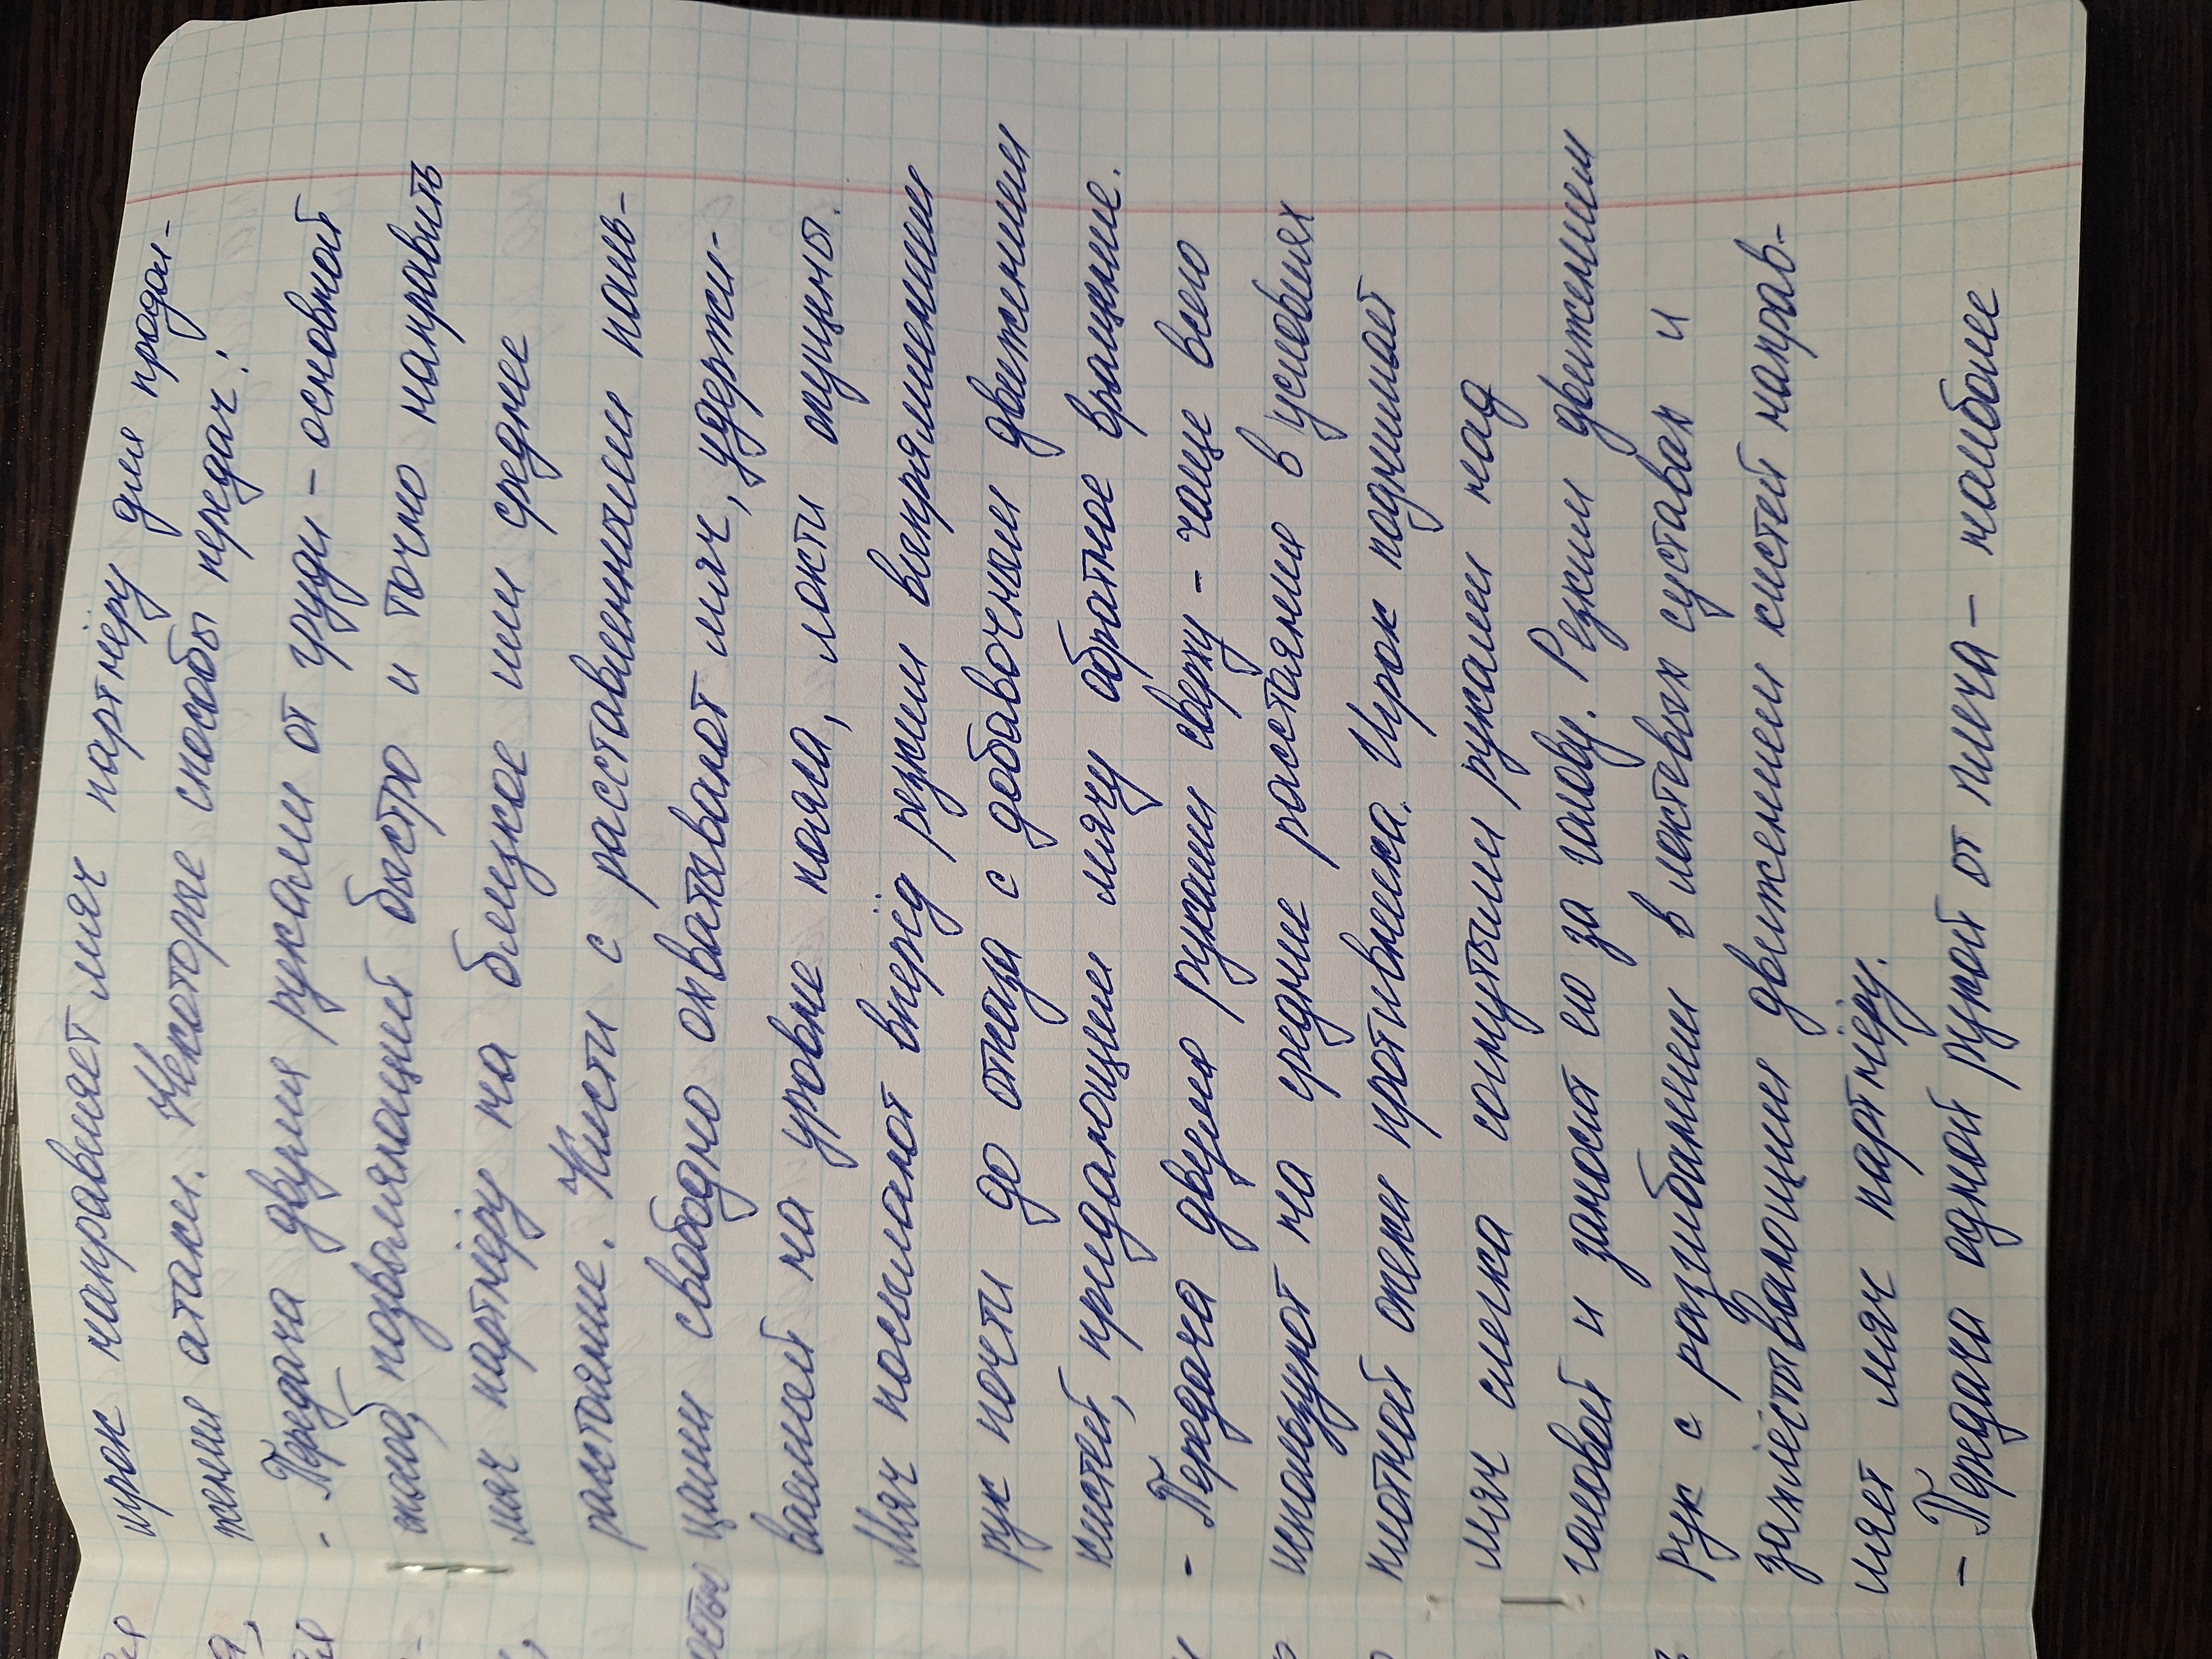 игрок направляет мяч партнёру для продол-
жения атаки. Некоторые способы передач:
- Передача двумя руками от груди - основной
способ, позволяющий быстро и точно направить
мяч партнёру на близкое или среднее
расстояние. Кисти с расставленными паль-
цами свободно охватывают мяч, удержи-
ваемый на уровне пояса, локти опущены.
Мяч посылают вперёд резким выпрямлением
рук почти до отказа с добавочным движением
кистей, придающим мячу обратное вращение.
- Передача двумя руками сверху - чаще всего
используют на средние расстояния в условиях
плотной опеки противника. Игрок поднимает
мяч слегка согнутыми руками над
головой и заносит его за голову. Резким движением
рук с разгибанием в локтевых суставах и
захлёстывающим движением кистей направ-
ляет мяч партнёру.
- Передача одной рукой от плеча - наиболее